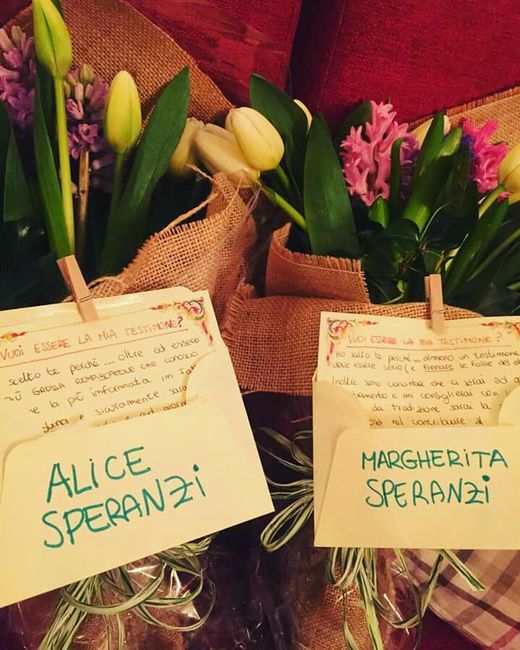 VUOI ESSERE LA MIA TESTIMONE?
scelto te perché.... oltre ad essere
più GROSSA ROMPISCATOLE che conosco
e la più informata in fatto
sicuramente sarai
ALICE
SPERANZI
VUOI ESSERE LA MIA TESTIMONE?
Ho scelto te perché ....almeno un testimone
deve essere serio (e frenare le follie del di
inoltre sono convinta che ci terai ad
e mi consiglierai con
da tradizione sarai la
nel contribuire al
MARGHERITA
SPERANZI